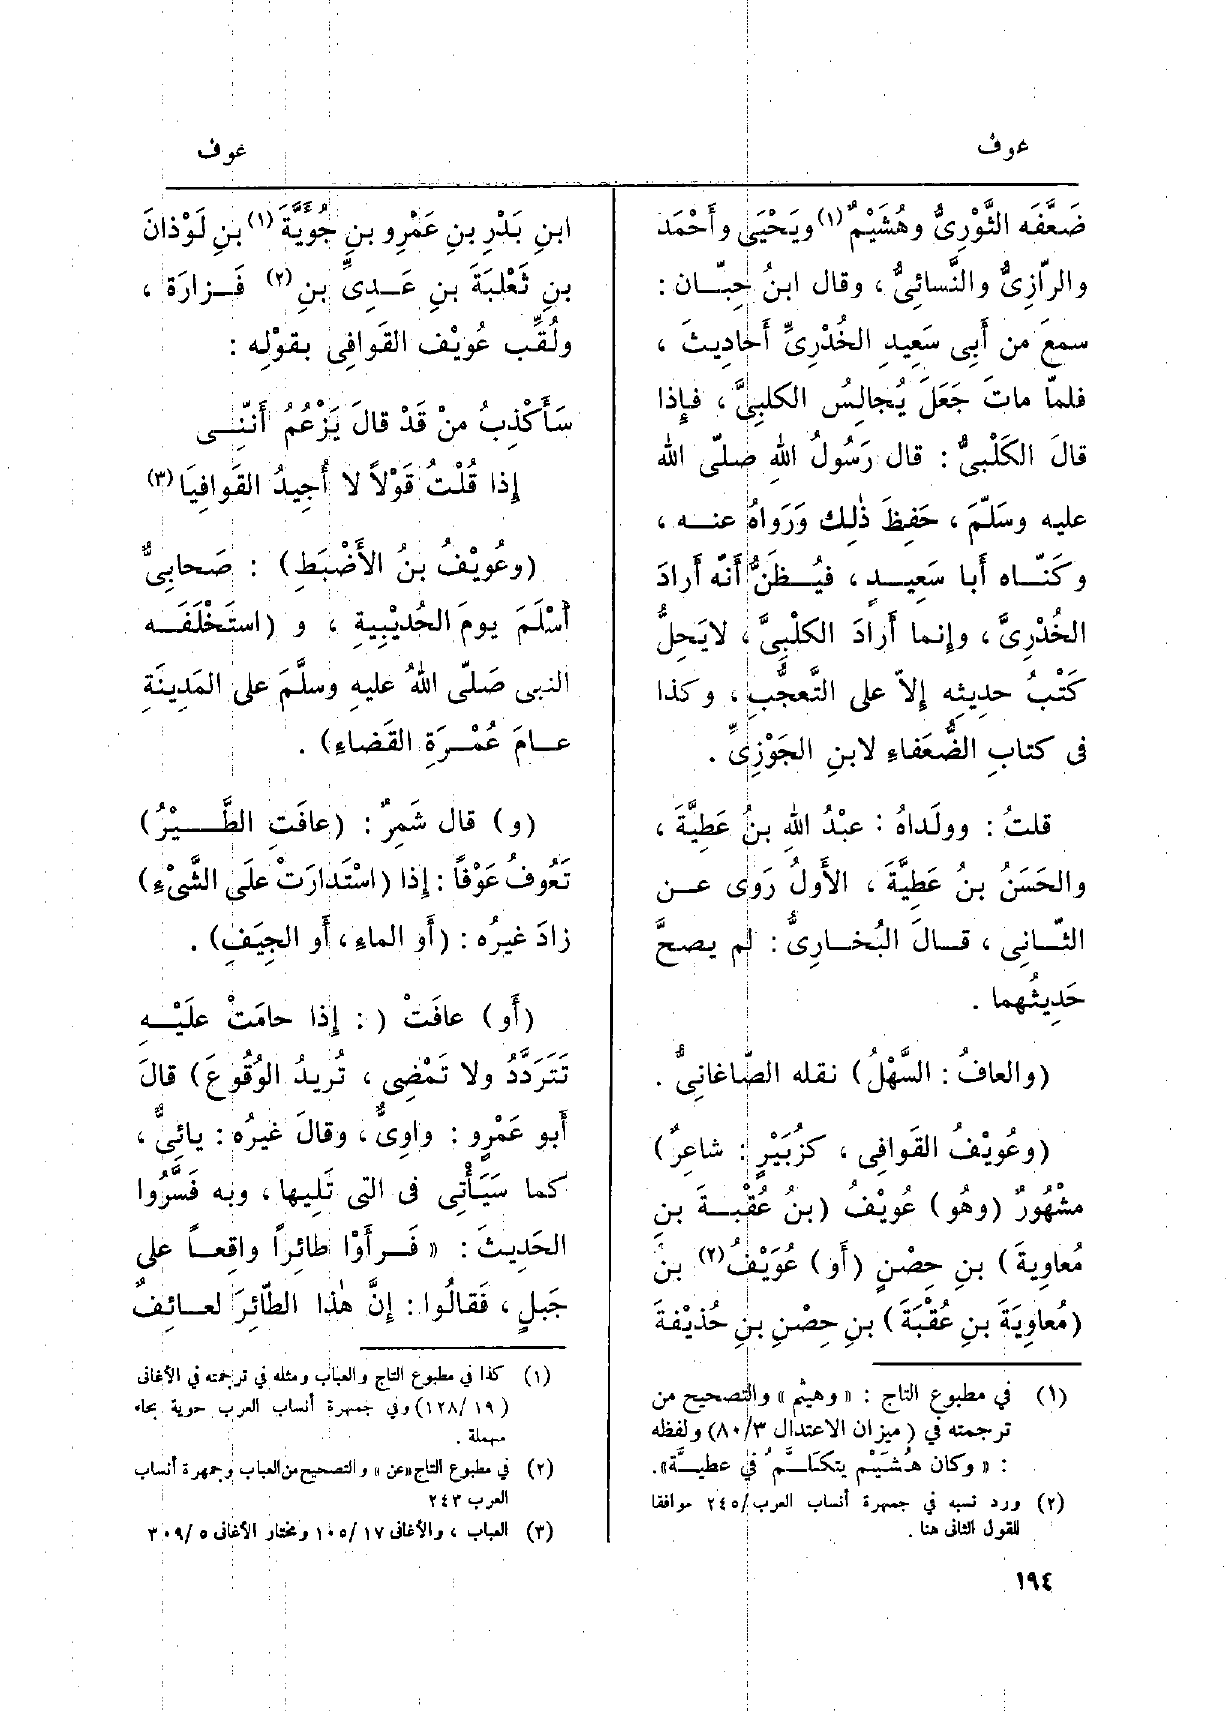 عوف
ضَعَّفَه الثَّوْرِىُّ وهُشَيْمٌ(١) ويَحْيَى وأَحْمَد
والرّازِىُّ والنَّسائِىُّ ، وقال ابنُ حِبّــان :
سمعَ من أَبِى سَعِيدٍ الخُدْرِىِّ أَحادِيثَ ،
فلمّا ماتَ جَعَلَ يُجالِسُ الكلبِىَّ ، فإِذا
قالَ الكَلْبِىُّ : قال رَسُولُ اللهِ صلّى الله
عليه وسَلَّمَ ، حَفِظَ ذٰلِك ورَواهُ عنــه ،
وكَنّــاه أَبا سَعِيــدٍ ، فيُــظَنُّ أَنّه أَرادَ
الخُدْرِىَّ ، وإِنما أَرادَ الكَلْبِىَّ ، لايَحِلُّ
كَتْبُ حديثِه إِلاّ على التَّعجُّبِ ، وكذا
فى كتابِ الضُّعَفاءِ لابنِ الجَوْزِىِّ .
قلتُ : وولَداهُ : عبْدُ اللهِ بنُ عَطِيَّةَ ،
والحَسَنُ بنُ عَطِيَّةَ ، الأَولُ رَوَى عــن
الثّــانِى ، قــالَ البُخــارِىُّ : لم يصحَّ
حَدِيثُهما .
(والعافُ : السَّهْلُ) نقله الصّاغانِىُّ .
(وعُويْفُ القَوافِى ، كزُبَيْرٍ : شاعِرٌ)
مشْهُورٌ (وهُو) عُويْفُ (بنُ عُقْبــةَ بنِ
مُعاوِيةَ) بنِ حِصْنٍ (أَو) عُوَيْفُ(٢) بنُ
(مُعاوِيَةَ بنِ عُقْبَةَ) بنِ حِصْنِ بنِ حُذَيْفةَ
(١) في مطبوع التاج : « وهيثم » والتصحيح من
ترجمته في ( ميزان الاعتدال ٨٠/٣) ولفظه
: « وكان هُشَيْم يتكلَّمُ في عطيَّة».
(٢) ورد نسبه في جمهرة أنساب العرب/٢٤٥ موافقا
للقول الثانى هنا .
١٩٤
عوف
ابنِ بَدْرِ بنِ عَمْرِو بنِ جُوَيَّةَ(١) بنِ لَوْذانَ
بنِ ثَعْلبَةَ بنِ عَــدِىِّ بنِ(٢) فَــزارَة ،
ولُقِّب عُويْف القَوافِى بقوْلِه :
سَأَكْذِبُ منْ قَدْ قالَ يَزْعُمُ أَنّنِــى
إِذا قُلْتُ قَوْلاً لا أُجِيدُ القَوافِيَا(٣)
(وعُويْفُ بنُ الأَضْبَطِ) : صَحابِىٌّ
أَسْلَمَ يومَ الحُدَيْبِيةِ ، و (استَخْلَفَــه
النبى صَلّى اللهُ عليهِ وسلَّمَ على المَدِينَةِ
عــامَ عُمْــرَةِ القَضاءِ) .
(و) قال شَمِرٌ : (عافَتِ الطَّــيْرُ)
تَعُوفُ عَوْفاً : إِذا (اسْتَدارَتْ علَى الشَّىْءِ)
زادَ غيرُه : (أَو الماءِ ، أَو الجِيَفِ) .
(أَو) عافَتْ ( : إِذا حامَتْ علَيْــه
تَتَرَدَّدُ ولا تَمْضِى ، تُرِيدُ الوُقُوعَ) قالَ
أَبو عَمْرٍو : واوِىٌّ ، وقالَ غيرُه : يائِىٌّ ،
كما سَيَأْتِى فى التى تَلِيها ، وبه فَسَّرُوا
الحَدِيثَ : « فَــرأَوْا طائِراً واقِعــاً على
جَبلٍ ، فَقالُوا : إِنَّ هٰذا الطّائِرَ لعــائِفٌ
(١) كذا في مطبوع التاج والعباب ومثله في ترجمته في الأغانى
( ١٢٨/١٩) وفي جمهرة أنساب العرب حوية بحاء
مهملة .
(٢) في مطبوع التاج «عن » والتصحيح من العباب وجمهرة أنساب
العرب ٢٤٣
(٣) العباب ، والأغانى ١٠٥/١٧ ومختار الأغانى ٣٠٩/٥